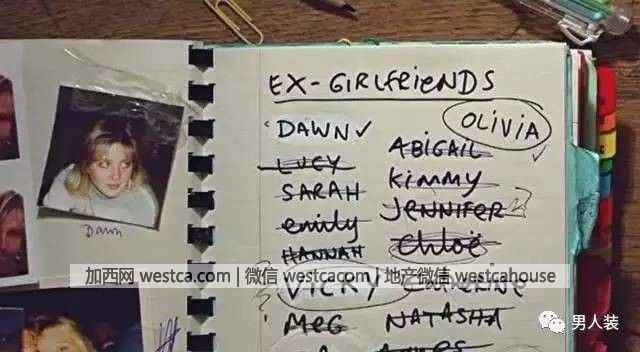 EX-GIRLFRIENDS
DAWN ✓
OLIVIA ✓
LUCY
ABIGAIL
SARAH
KIMMY
emily
JENNIFER
HANNAH
Chloë
VICKY
CATHERINE
MEG
NATASHA
AGNES
Dawn
加西网 westca.com | 微信 westcacom | 地产微信 westcahouse
男人装